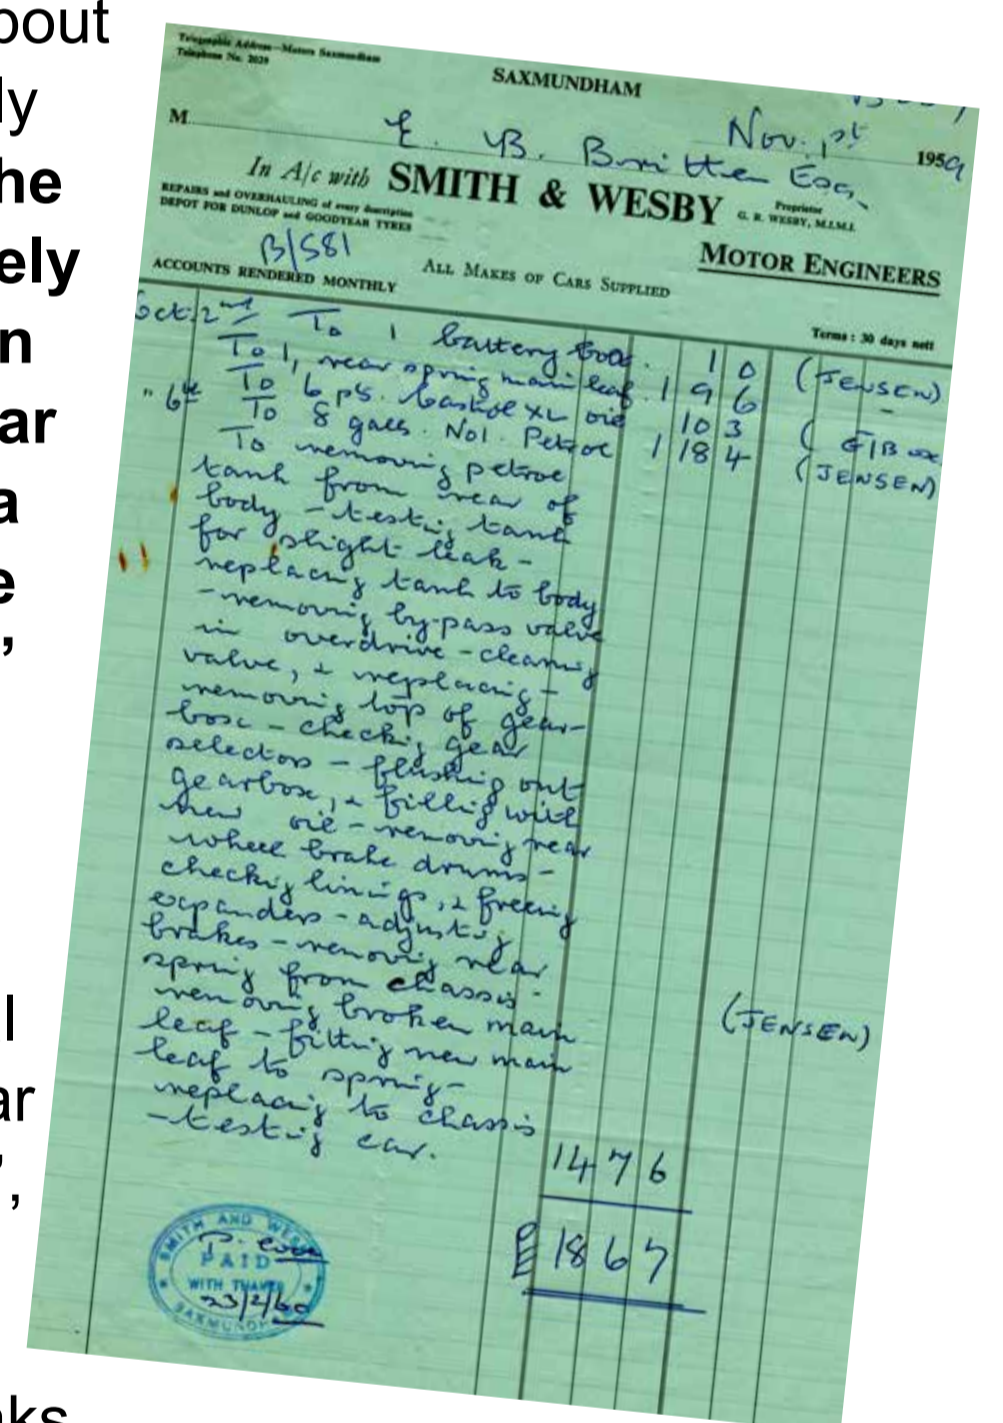 bout
ly
he
ely
n
ar
a
e
,
l
ar
,
ks
Telegraphic Address—Motors Saxmundham
Telephone No. 2029
SAXMUNDHAM
Nov. 1st 1959
M E. B. Britten Esq,
In A/c with SMITH & WESBY
Proprietor
G. R. WESBY, M.I.M.I.
REPAIRS and OVERHAULING of every description
DEPOT FOR DUNLOP and GOODYEAR TYRES
MOTOR ENGINEERS
B/581
ACCOUNTS RENDERED MONTHLY
ALL MAKES OF CARS SUPPLIED
Terms: 30 days nett
Oct. 2nd To 1 battery bolt. 1 0 (JENSEN)
To 1, rear spring main leaf. 1 9 6 -
" 6th To 6 pts. Castrol XL oil 10 3 ( G/Box
To 8 galls. No1. Petrol 1 18 4 (JENSEN)
To removing petrol
tank from rear of
body - testing tank
for slight leak -
replacing tank to body
- removing by-pass valve
in overdrive - cleaning
valve, & replacing -
removing top of gear-
box - checking gear
selectors - flushing out
gearbox, & filling with
new oil - removing rear
wheel brake drums -
checking linings, & freeing
expanders - adjusting
brakes - removing rear
spring from chassis -
removing broken main
leaf - fitting new main (JENSEN)
leaf to spring -
replacing to chassis
- testing car.
14 7 6
£ 18 6 7
SMITH AND WESBY
PAID
WITH THANKS
23/2/60
SAXMUNDHAM